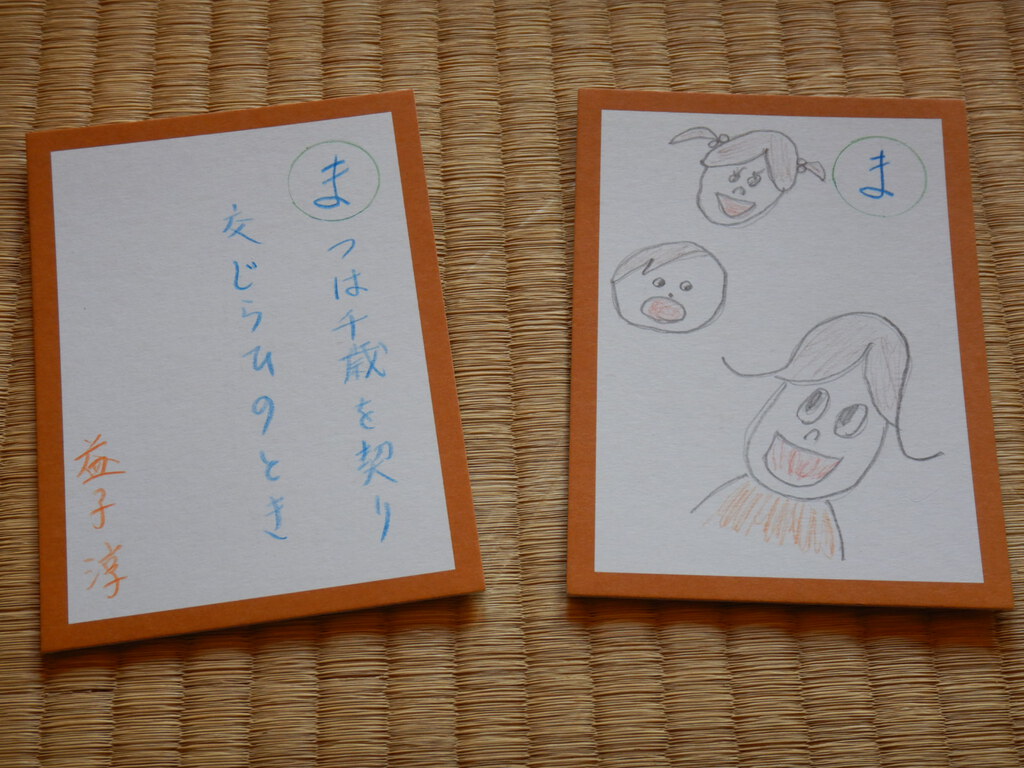 ま
つは千歳を契り
交じらひのとき
益子 淳
ま